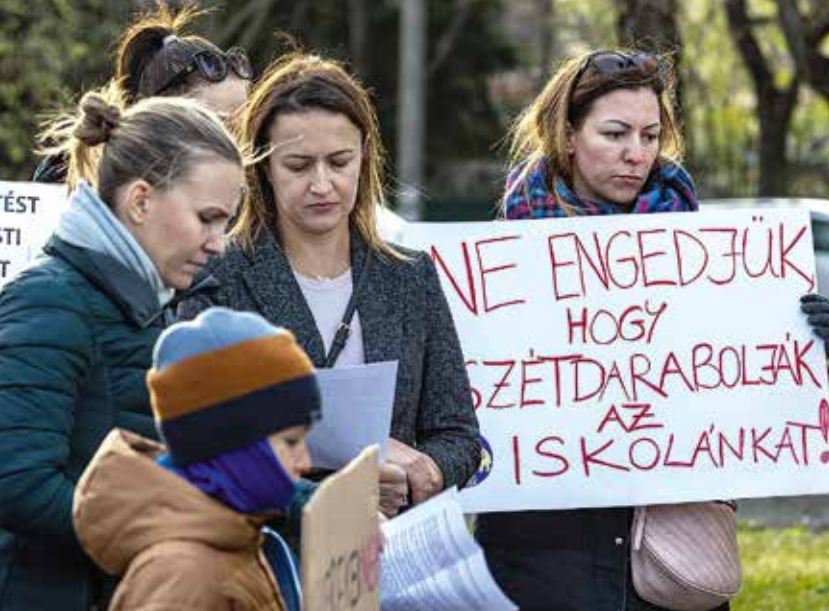 TÉST
STI
T
NE ENGEDJÜK,
HOGY
SZÉTDARABOLJÁK
AZ
ISKOLÁNKAT!